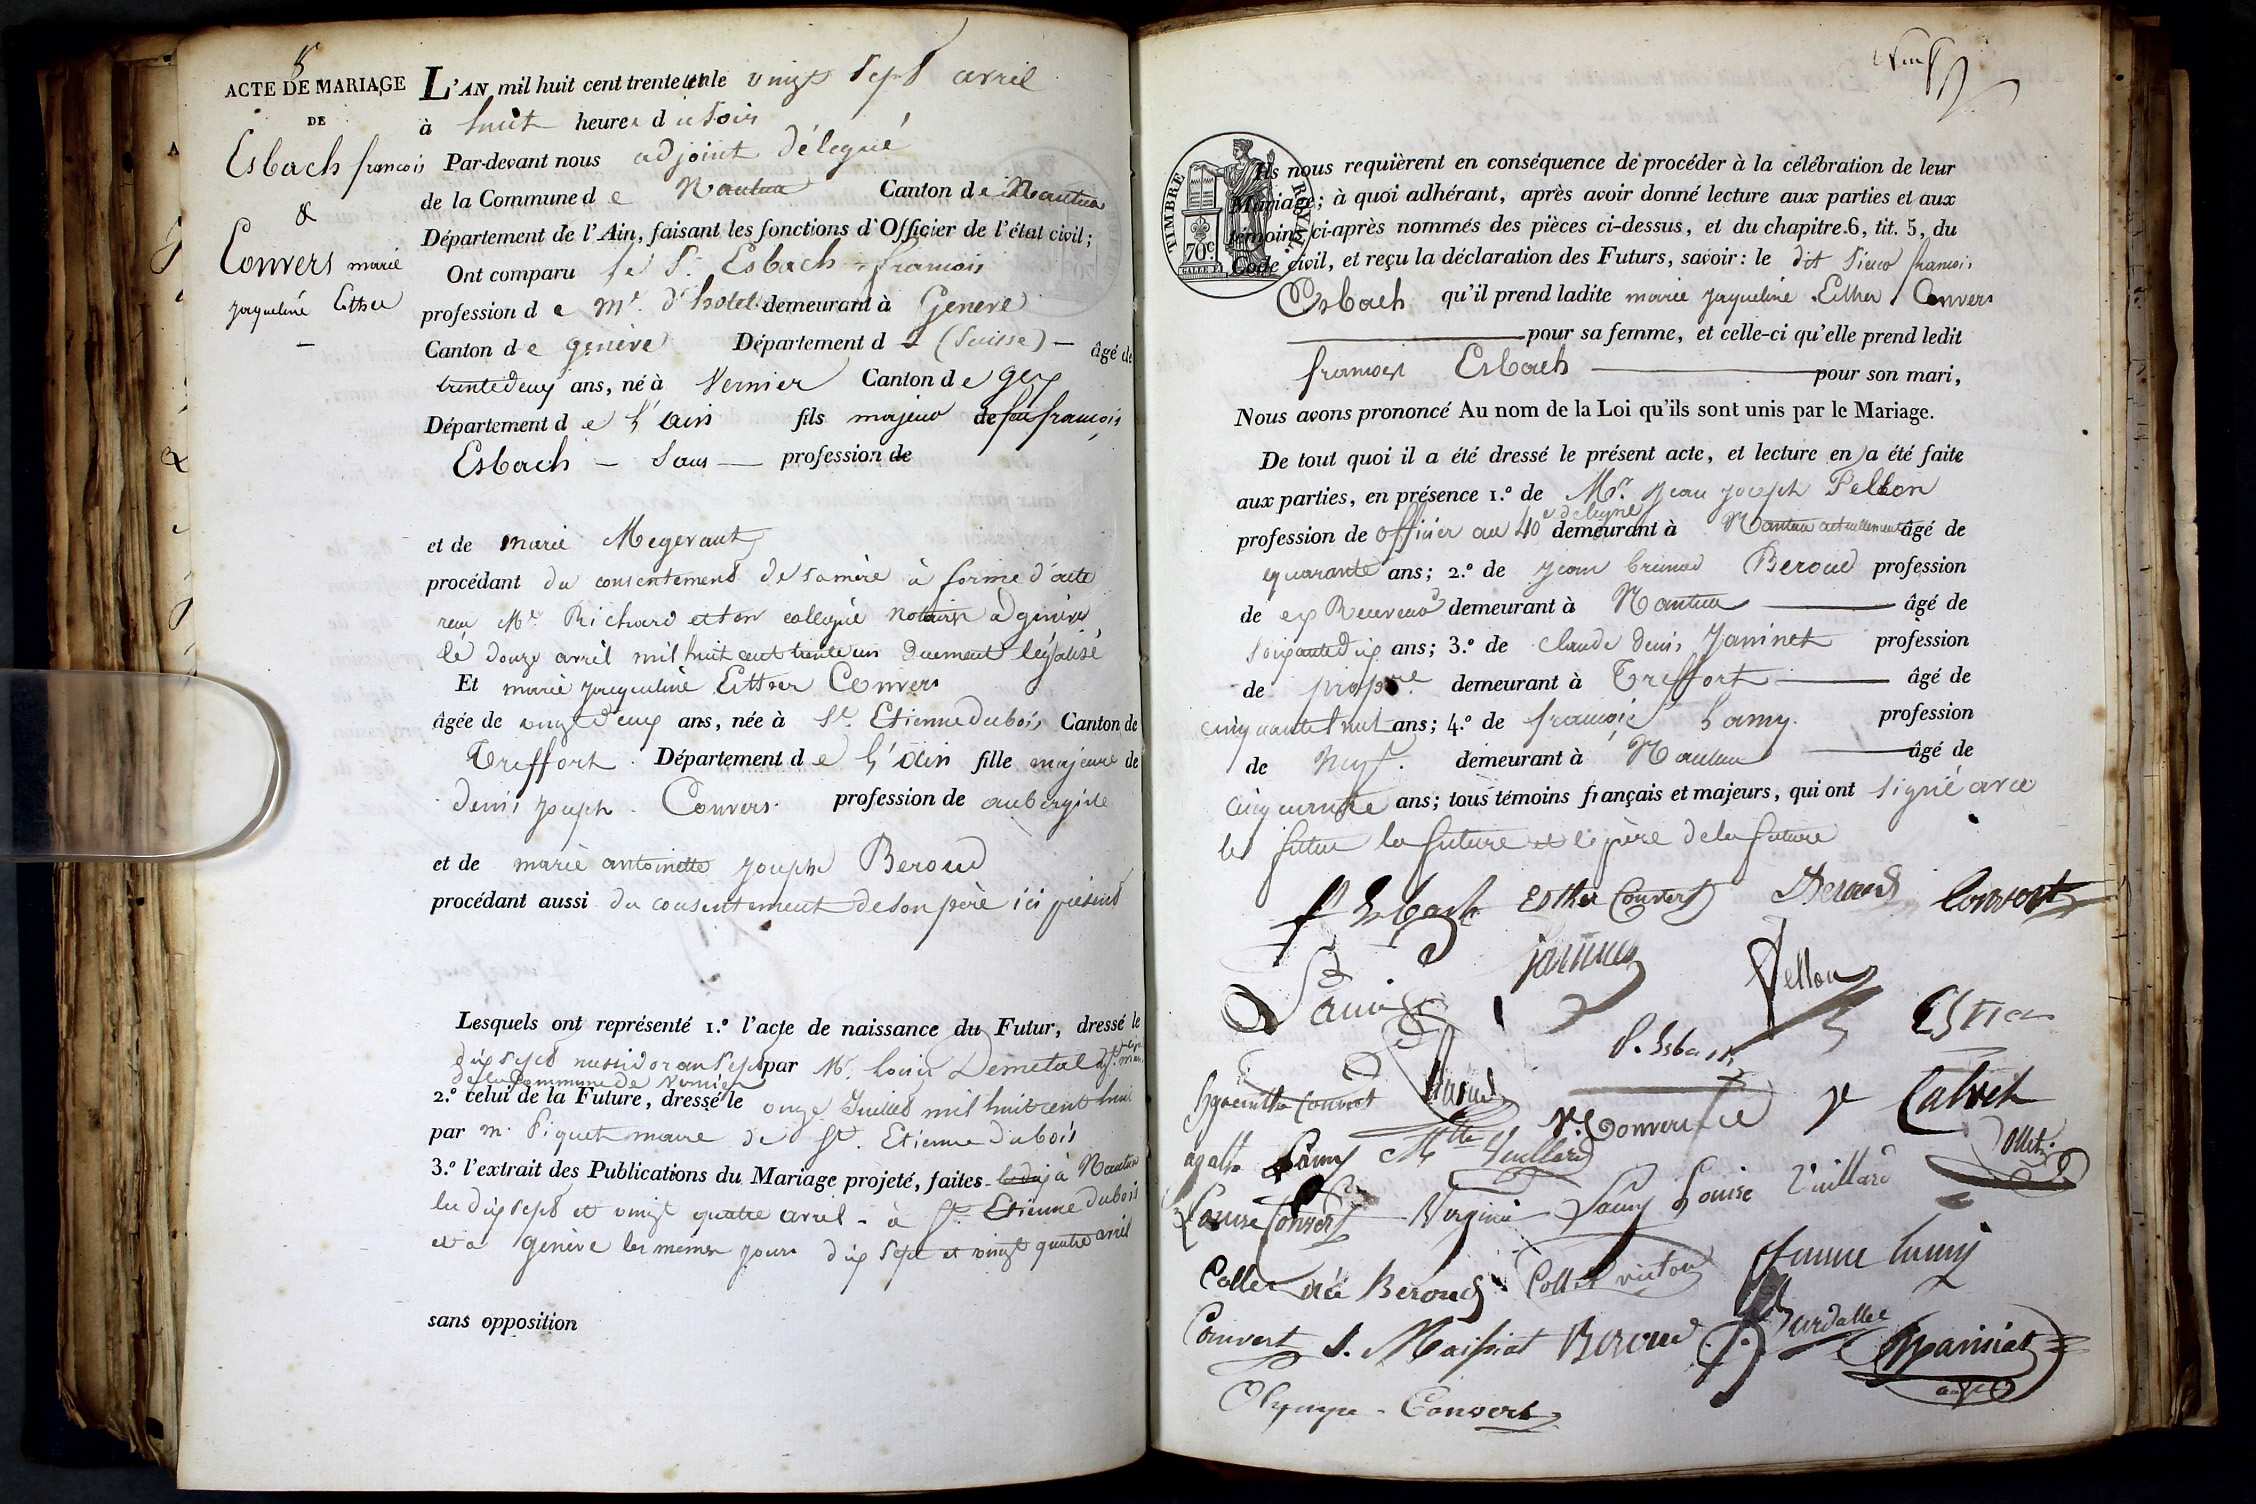 8
ACTE DE MARIAGE
DE
Esbach francois
&
Convers marie
jaqueline Esther
L'AN mil huit cent trente un le vingt sept avril
à huit heures du soir
Par-devant nous adjoint délegué
de la Commune de Nantua Canton de Nantua
Département de l'Ain, faisant les fonctions d'Officier de l'état civil;
Ont comparu le Sr. Esbach francois
profession de Me. d'hotel demeurant à Geneve
Canton de genève Département d (Suisse) — âgé de
trentedeux ans, né à Vernier Canton de gex
Département de l'Ain fils majeur de feu francois
Esbach — Sans — profession de
et de marie Megevant
procédant du consentement de sa mère à forme d'acte
reçu Me Richard et son collegue notaires a genève
le douze avril mil huit cent trente un duement légalisé
Et marie jacqueline Esther Convers
âgée de vingt deux ans, née à St. Etienne dubois Canton de
Treffort Département de l'Ain fille majeure de
denis joseph Convers profession de aubergiste
et de marie antoinette joseph Beroud
procédant aussi du consentement de son père ici présent
Lesquels ont représenté 1.° l'acte de naissance du Futur, dressé le
dix sept messidor an sept par Mr. Louis Demetal
de la Commune de Vernier
2.° celui de la Future, dressé le onze Juillet mil huit cent huit
par m. Piquet maire de St. Etienne dubois
3.° l'extrait des Publications du Mariage projeté, faites à Nantua
les dix sept et vingt quatre avril - à St. Etienne dubois
et a genève les memes jours dix sept et vingt quatre avril
sans opposition
neuf
TIMBRE ROYAL
70c
Ils nous requièrent en conséquence de procéder à la célébration de leur
Mariage; à quoi adhérant, après avoir donné lecture aux parties et aux
témoins ci-après nommés des pièces ci-dessus, et du chapitre 6, tit. 5, du
Code civil, et reçu la déclaration des Futurs, savoir: le dit Sieur francois
Esbach qu'il prend ladite marie jaqueline Esther Convers
pour sa femme, et celle-ci qu'elle prend ledit
francois Esbach pour son mari,
Nous avons prononcé Au nom de la Loi qu'ils sont unis par le Mariage.
De tout quoi il a été dressé le présent acte, et lecture en a été faite
aux parties, en présence 1.° de Mr. Jean joseph Pellon
profession de officier au 40e de ligne demeurant à Nantua actuellement âgé de
quarante ans; 2.° de jean Beroud profession
de ex Receveur demeurant à Nantua âgé de
soixante dix ans; 3.° de claude denis Janinet profession
de propre. demeurant à Treffort âgé de
cinquante huit ans; 4.° de françois Lamy profession
de Negt. demeurant à Nantua âgé de
cinquante ans; tous témoins français et majeurs, qui ont signé avec
le futur la future et le père de la future
f Esbach Esther Convers Beroud Convert
Lami Janinet Pellon
hyacinthe Convert Convers Calvet
agathe Lamy Mlle Vuillard Collet
Louise Convers Virginie Lamy Louise Vuillard
Collet née Beroud Collet victor femme lamy
Convert J. Maissiat Beroud
Olympe Convers